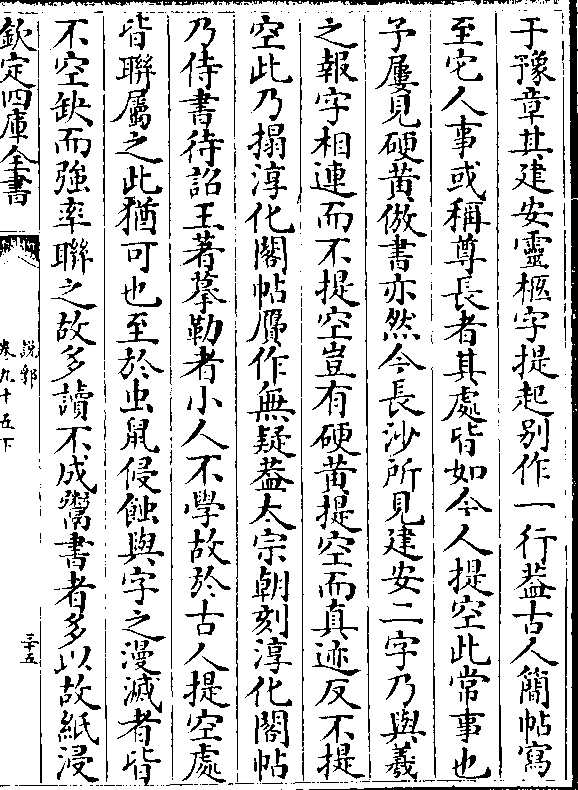 于豫章其建安靈柩字提起别作一行葢古人簡帖寫
至宅人事或稱尊長者其處皆如今人提空此常事也
予屢見硬黄倣書亦然今長沙所見建安二字乃與羲
之報字相連而不提空豈有硬黄提空而真迹反不提
空此乃搨淳化閣帖贋作無疑葢太宗朝刻淳化閣帖
乃侍書待詔王著摹勒者小人不學故於古人提空處
皆聯屬之此猶可也至於虫鼠侵蝕與字之漫滅者皆
不空缺而強率聯之故多讀不成鬻書者多以故紙浸
欽定四庫全書
說郛
卷九十五下
三十五